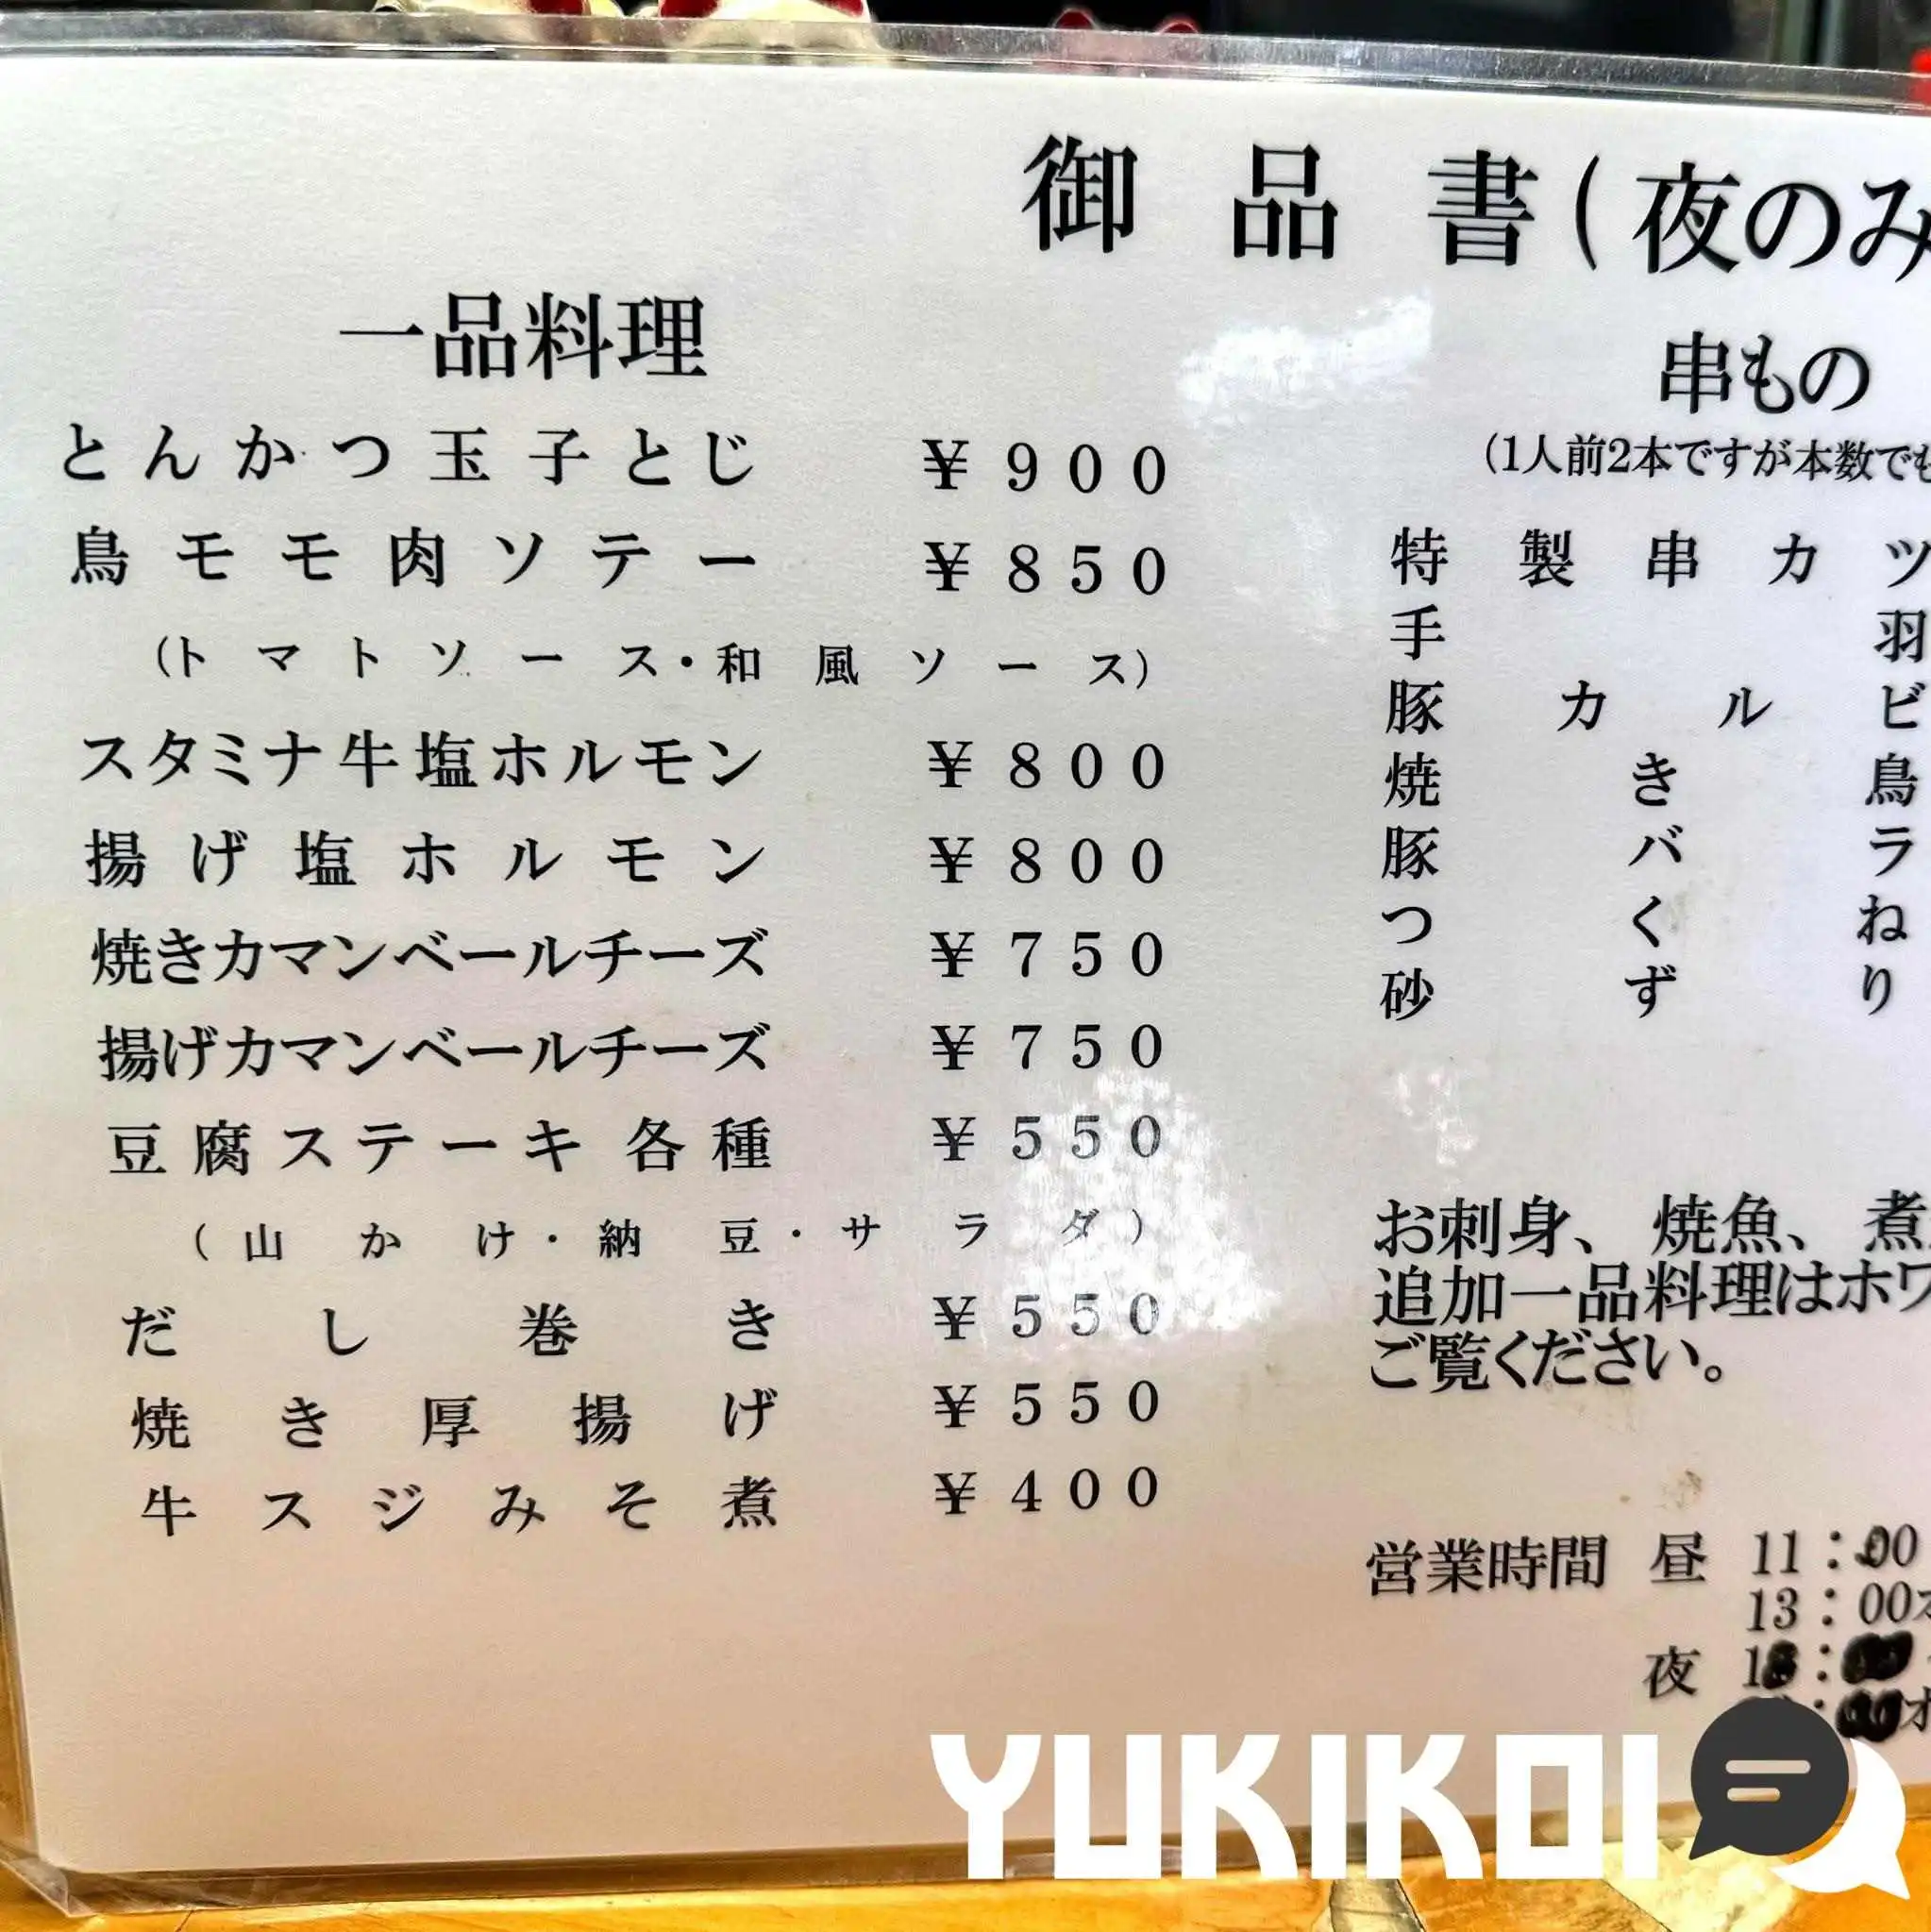 御品書(夜のみ
一品料理
とんかつ玉子とじ ¥900
鳥モモ肉ソテー ¥850
(トマトソース・和風ソース)
スタミナ牛塩ホルモン ¥800
揚げ塩ホルモン ¥800
焼きカマンベールチーズ ¥750
揚げカマンベールチーズ ¥750
豆腐ステーキ各種 ¥550
(山かけ・納豆・サラダ)
だし巻き ¥550
焼き厚揚げ ¥550
牛スジみそ煮 ¥400
串もの
(1人前2本ですが本数でも
特製串カツ
手羽
豚カルビ
焼き鳥
豚バラ
つくね
砂ずり
お刺身、焼魚、煮
追加一品料理はホワ
ご覧ください。
営業時間 昼 11:00
13:00オ
夜
YUKIKOI